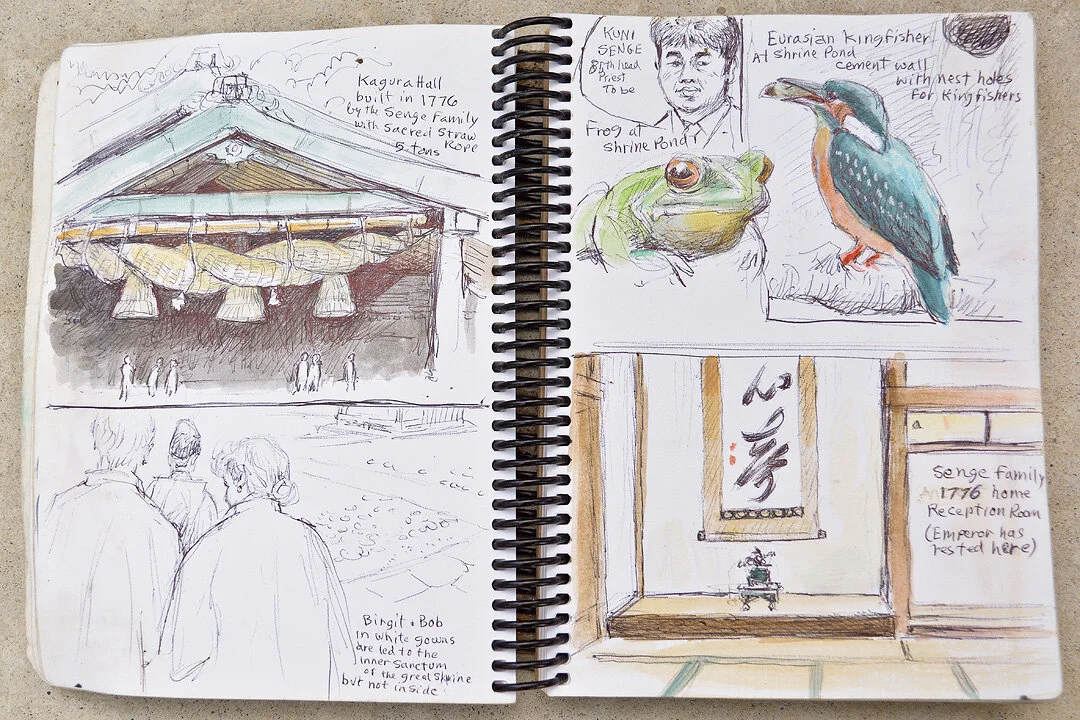 Kagura Hall
built in 1776
by the Senge Family
with Sacred Straw
Rope
5 tons
Birgit + Bob
in white gowns
are led to the
inner sanctum
of the great Shrine
but not inside
KUNI
SENGE
85th head
Priest
To be
Frog at
Shrine Pond
Eurasian Kingfisher
At Shrine Pond
cement wall
with nest holes
For Kingfishers
心
Senge Family
1776 home
Reception Room
(Emperor has
rested here)